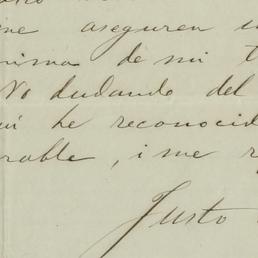 me aseguren
de mi
No dudando del
he reconocid
rable, i me
Justo